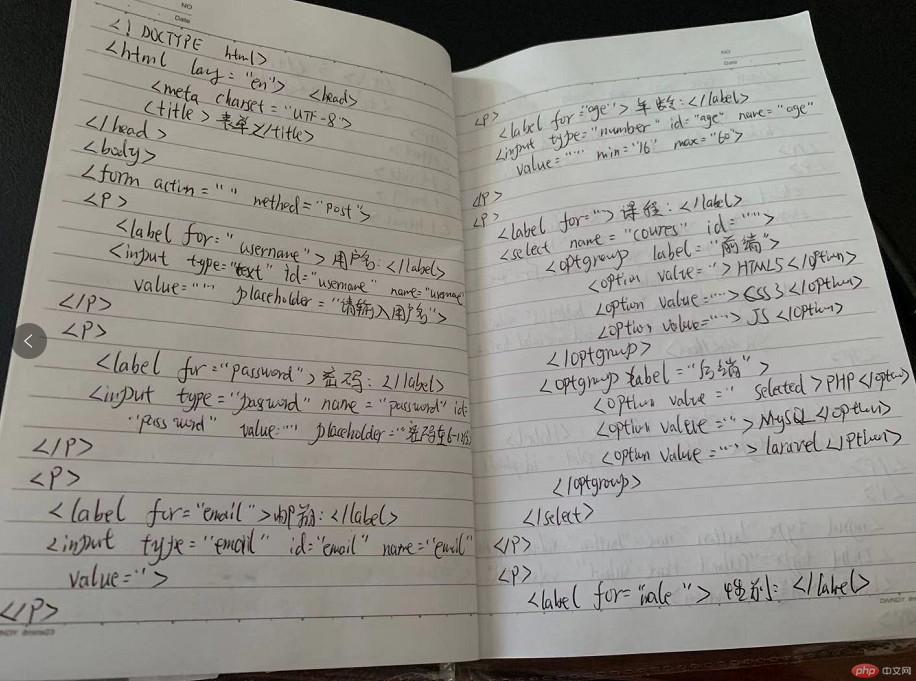 NO
Date
<! DOCTYPE html>
<html lay="en"> <head>
<meta charset="UTF-8">
<title> 表单</title>
</head>
<body>
<form action="" method="post">
<P>
<label for="username">用户名:</label>
<input type="text" id="username" name="username"
value="" placeholder="请输入用户名">
</P>
<P>
<label for="password">密码:</label>
<input type="password" name="password" id=
"password" value="" placeholder="密码在6-12位
</P>
<P>
<label for="email">邮箱:</label>
<input type="email" id="email" name="email"
value="">
</P>
NO
Date
<P>
<label for="age">年龄:</label>
<input type="number" id="age" name="age"
value="" min="16" max="60">
</P>
<P>
<label for="">课程:</label>
<select name="coures" id="">
<optgroup label="前端">
<option value="">HTML5</option>
<option value="">CSS3</option>
<option value="">JS</option>
</optgroup>
<optgroup label="后端">
<option value="" selected>PHP</option>
<option value="">MySQL</option>
<option value="">laravel</option>
</optgroup>
</select>
</P>
<P>
<label for="male">性别:</label>
php 中文网